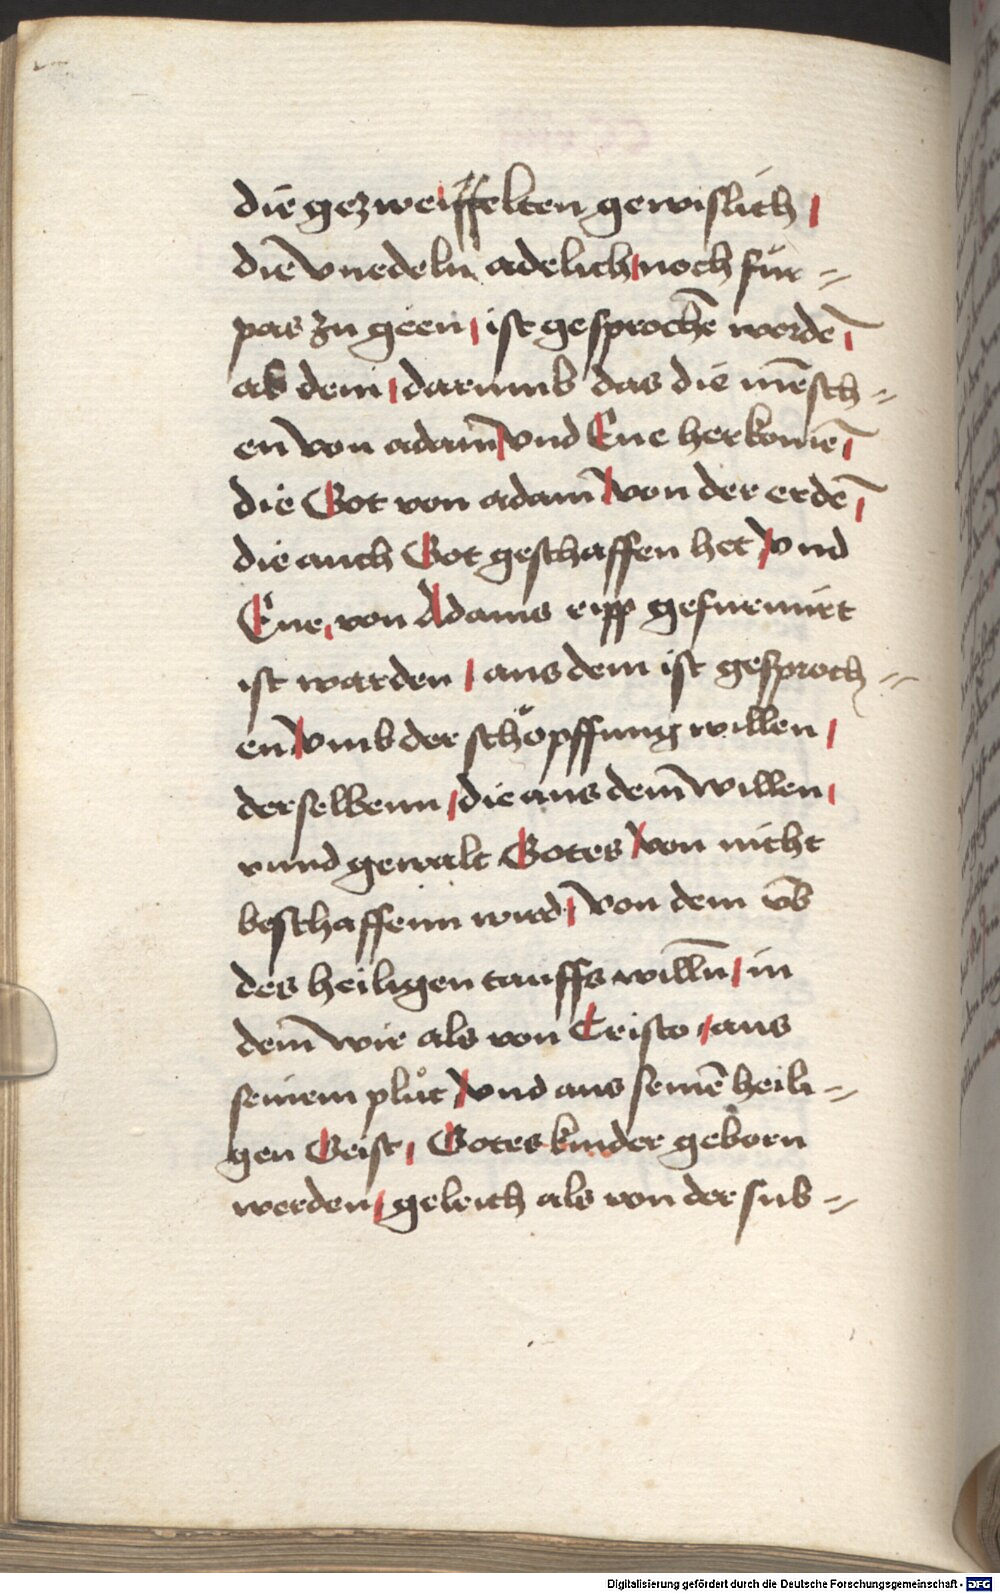 die gezweiffelten gewislich /
die vnedeln adelich / noch für =
pas zu geen / ist gesprochē werdē /
ab dem / darumb das die mēsch =
en von adam / vnd Eue herkomē /
die Got von adam / von der erdē /
die auch Got geschaffen het / vnd
Eue, von Adams ripp gefurmirt
ist warden / aus dem ist gesproch =
en / vmb der schöpffung willen /
derselbenn / die aus dem willen /
vnnd gewalt Gotes / von nicht
beschaffenn wird / von dem vb̄
des heiligen tauffs willn̄ / in
dem wir als von Cristo / aus
seinem plůt / vnd aus seinē heili =
gen Geist / Gotes kinder geborn
werden / geleich als von der sub =
Digitalisierung gefördert durch die Deutsche Forschungsgemeinschaft - DFG